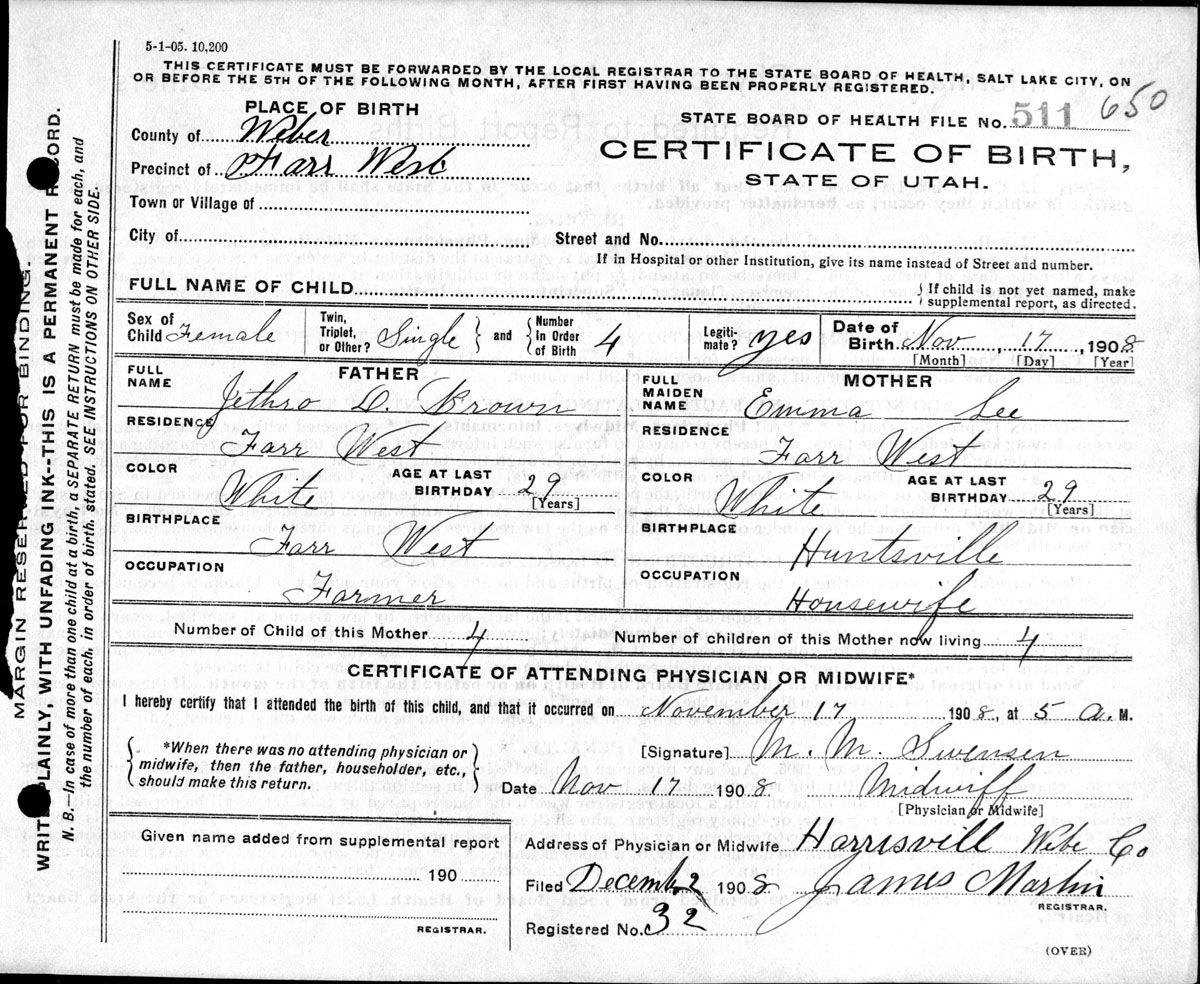 5-1-05. 10,200
THIS CERTIFICATE MUST BE FORWARDED BY THE LOCAL REGISTRAR TO THE STATE BOARD OF HEALTH, SALT LAKE CITY, ON
OR BEFORE THE 5TH OF THE FOLLOWING MONTH, AFTER FIRST HAVING BEEN PROPERLY REGISTERED.
650
PLACE OF BIRTH
STATE BOARD OF HEALTH FILE No. 511
County of Weber
CERTIFICATE OF BIRTH,
Precinct of Farr West
STATE OF UTAH.
Town or Village of
City of Street and No.
If in Hospital or other Institution, give its name instead of Street and number.
FULL NAME OF CHILD { If child is not yet named, make
supplemental report, as directed.
Sex of Child Female Twin, Triplet, or Other? Single } and { Number in Order of Birth 4 Legitimate? yes Date of Birth Nov 17 1908
[Month] [Day] [Year]
FATHER MOTHER
FULL NAME Jethro D. Brown FULL MAIDEN NAME Emma Lee
RESIDENCE Farr West RESIDENCE Farr West
COLOR Whit AGE AT LAST BIRTHDAY 29 [Years] COLOR White AGE AT LAST BIRTHDAY 29 [Years]
BIRTHPLACE Farr West BIRTHPLACE Huntsville
OCCUPATION Farmer OCCUPATION Housewife
Number of Child of this Mother 4 Number of children of this Mother now living 4
CERTIFICATE OF ATTENDING PHYSICIAN OR MIDWIFE*
I hereby certify that I attended the birth of this child, and that it occured on November 17, 1908, at 5 a. M.
{ *When there was no attending physician or
midwife, then the father, householder, etc.,
should make this return. }
[Signature] M. M. Swensen
Date Nov 17 1908 Midwiff
[Physician or Midwife]
Given name added from supplemental report
Address of Physician or Midwife Harrisvill Webe Co
190
Filed December 2 1908 James Martin
REGISTRAR.
REGISTRAR.
Registered No. 32
(OVER)
MARGIN RESERVED FOR BINDING.
WRIT PLAINLY, WITH UNFADING INK--THIS IS A PERMANENT R CORD.
N.B. In case of more than one child at a birth, a SEPARATE RETURN must be made for each, and
the number of each, in order of birth, stated. SEE INSTRUCTIONS ON OTHER SIDE.